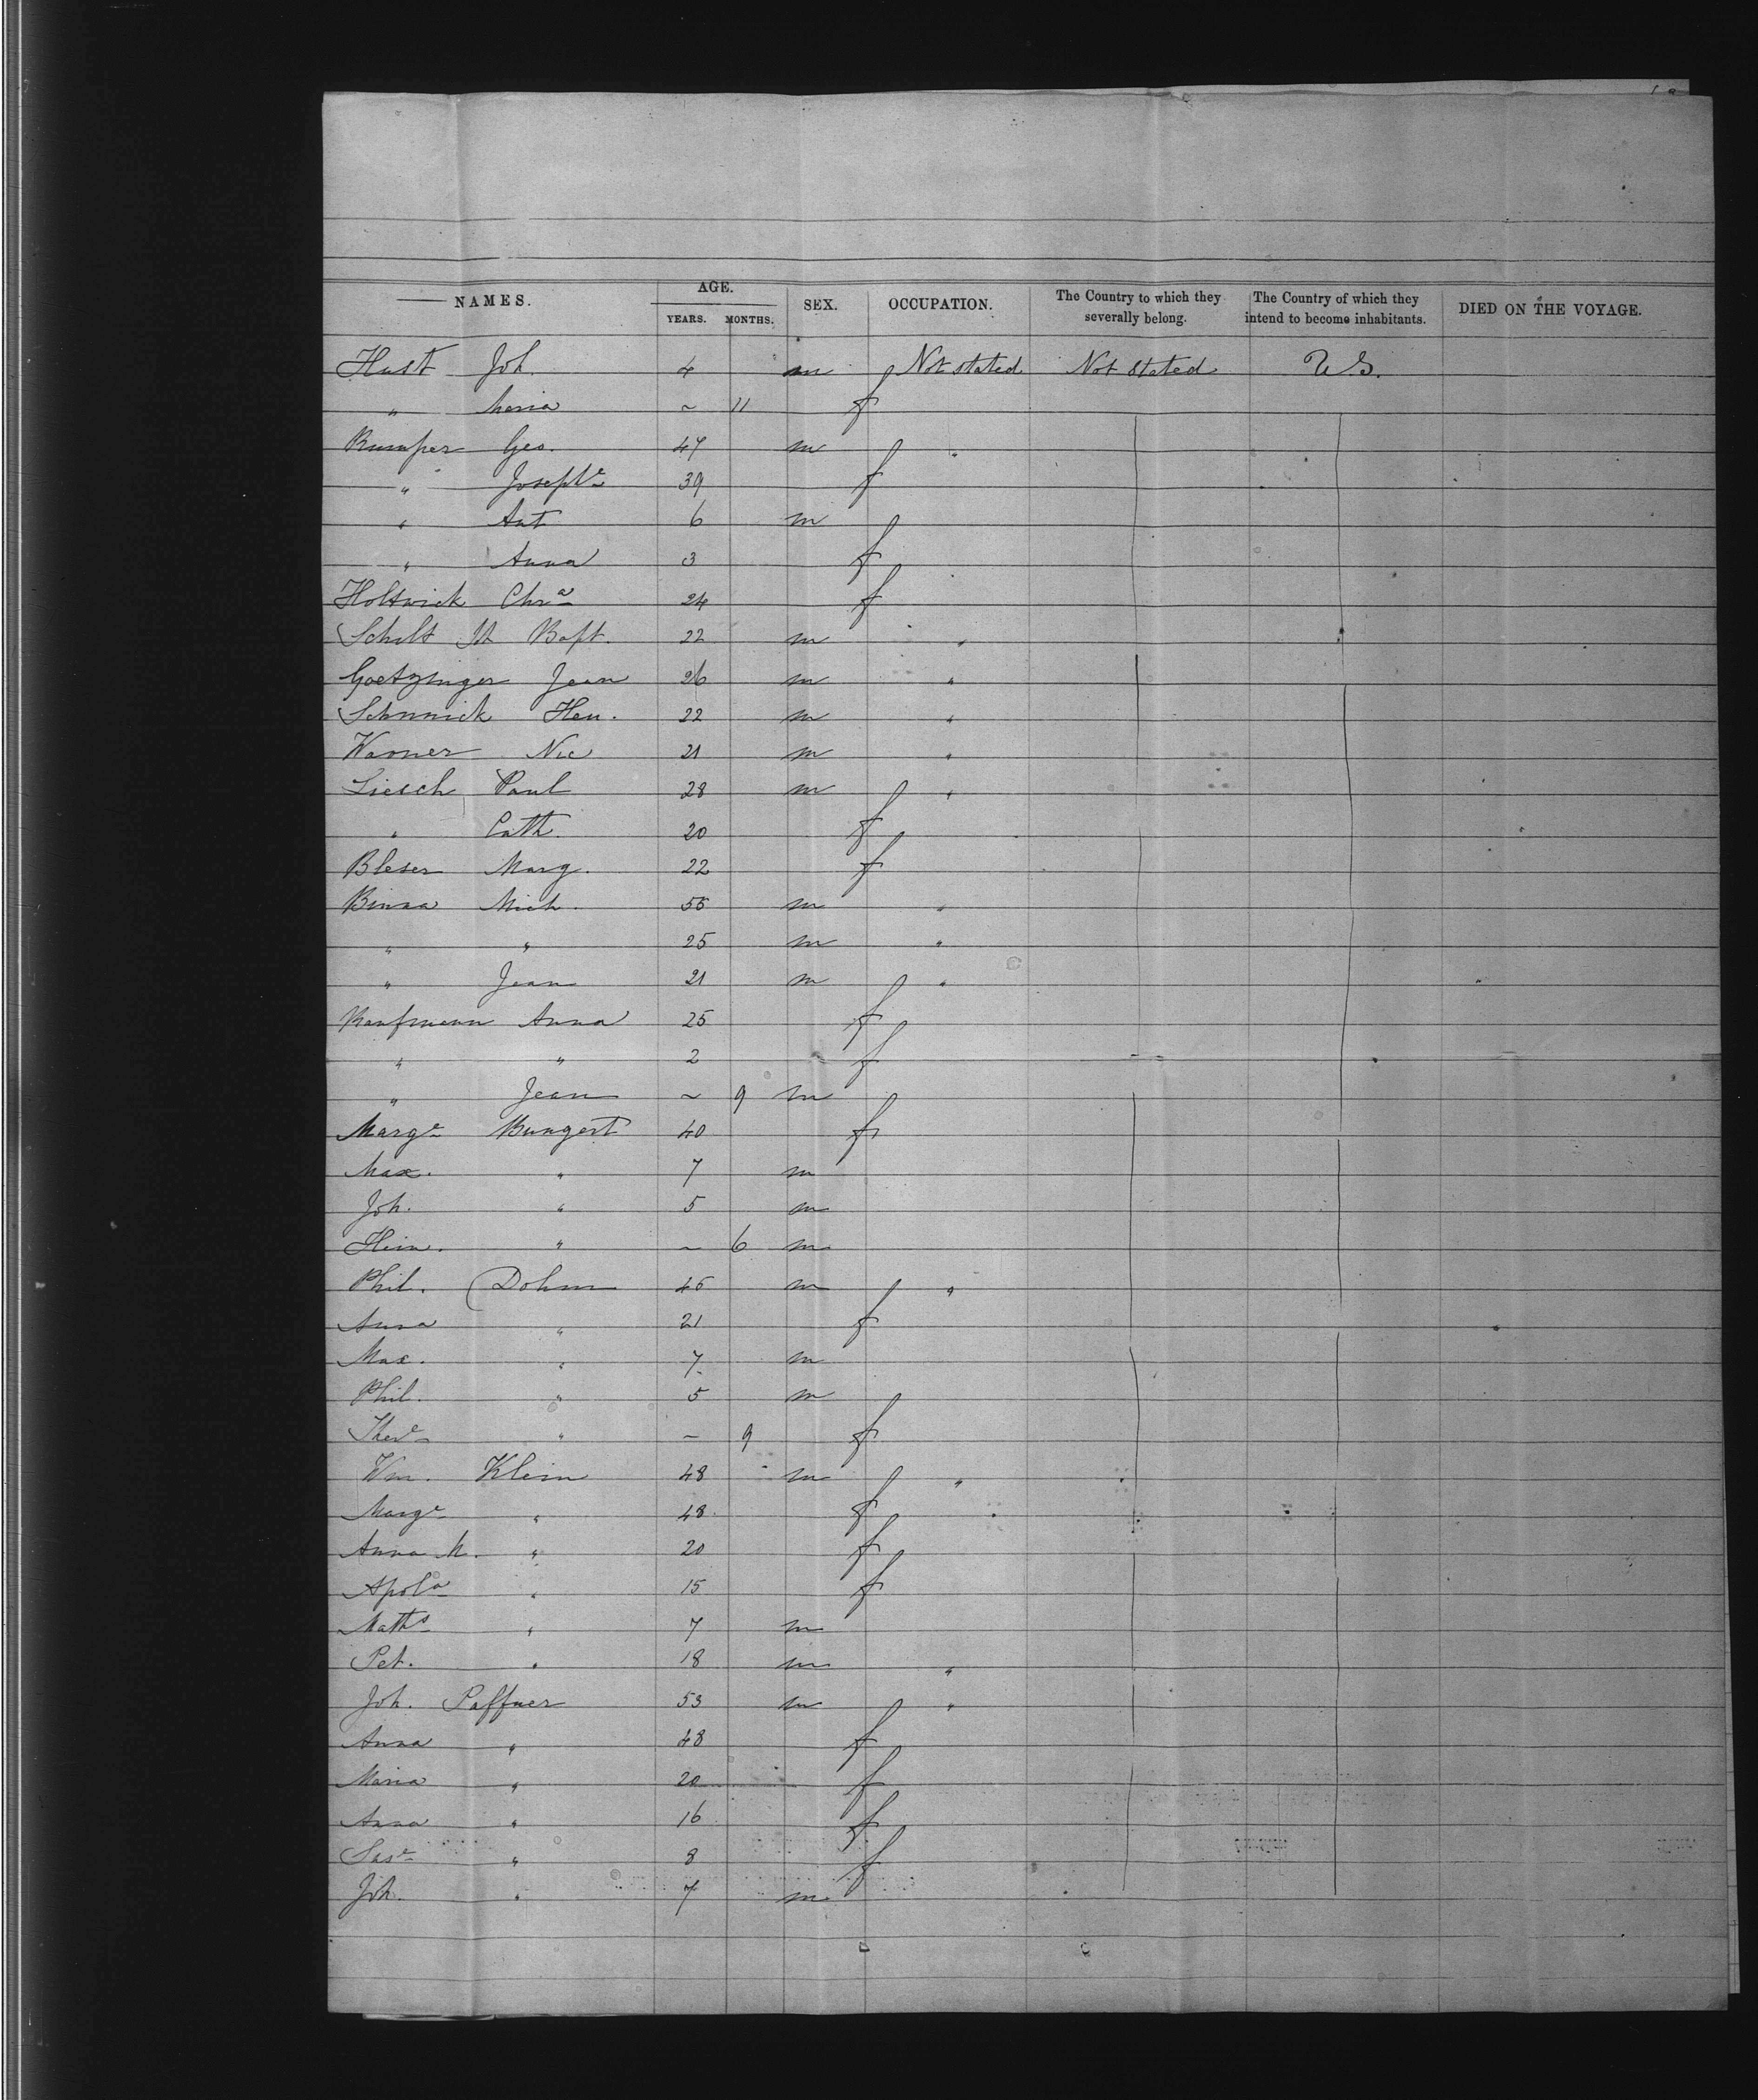 NAMES. AGE. SEX. OCCUPATION. The Country to which they severally belong. The Country of which they intend to become inhabitants. DIED ON THE VOYAGE.
YEARS. MONTHS.
Hust Joh. 4 m Not stated Not stated U.S.
" Maria ~ 11 f
Rumper Geo. 47 m "
" Josephe 39 f
" Ant 6 m
" Anna 3 f
Holtwick Chra 24 f
Schilt Jn Bapt. 22 m "
Goetzinger Jean 26 m "
Schnnick Hen. 22 m "
Warner Nic 21 m "
Liesch Paul 28 m "
" Cath. 20 f
Bleser Marg. 22 f
Binsa Mich. 55 m "
" " 25 m "
" Jean 21 m "
Kaufmann Anna 25 f
" " 2 f
" Jean ~ 9 m
Marge Bungert 40 f
Max. " 7 m
Joh. " 5 m
Hein. " ~ 6 m
Phil. Dohm 45 m "
Anna " 21 f
Max. " 7 m
Phil. " 5 m
There " ~ 9 f
Wm. Klein 48 m "
Marge " 48 f
Anna M. " 20 f
Apola " 15 f
Maths " 7 m
Pet. " 18 m "
Joh. Paffner 53 m "
Anna " 48 f
Maria " 20 f
Anna " 16 f
Suse " 8 f
Joh. " 7 m